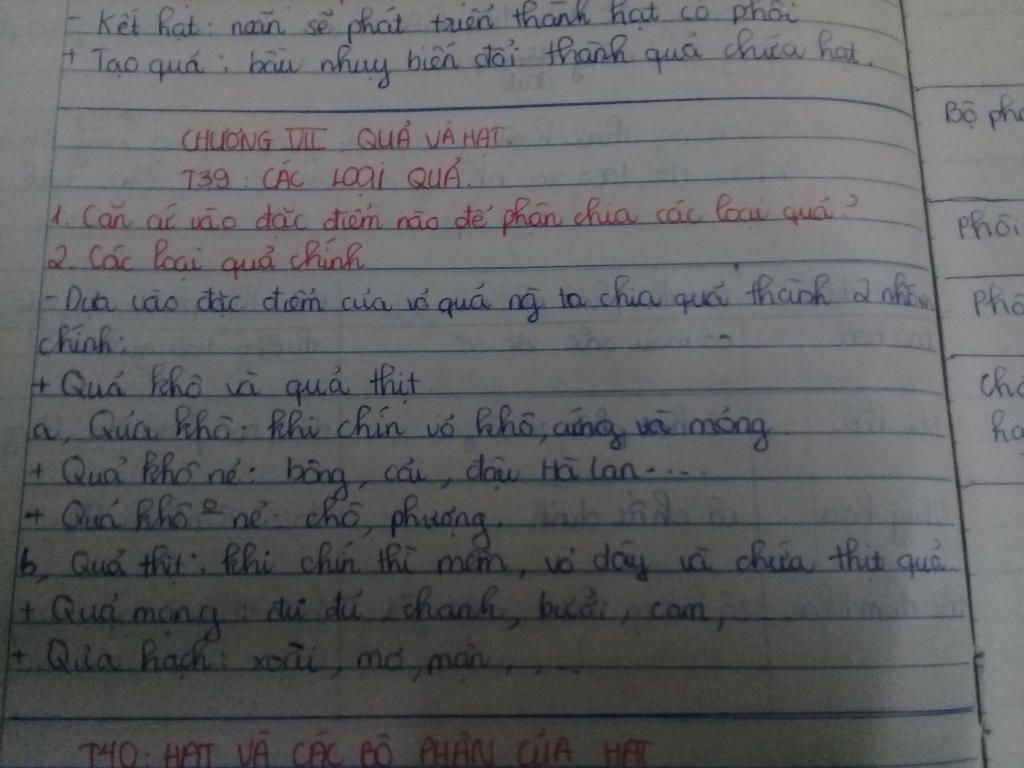 - Kết hạt: noãn sẽ phát triển thành hạt có phôi
+ Tạo quả: bầu nhụy biến đổi thành quả chứa hạt.
CHƯƠNG VII QUẢ VÀ HẠT
Bộ phậ
T39: CÁC LOẠI QUẢ.
1. Căn cứ vào đặc điểm nào để phân chia các loại quả?
Phôi
2. Các loại quả chính
- Dựa vào đặc điểm của vỏ quả ng ta chia quả thành 2 nhóm
Phô
chính:
+ Quả khô và quả thịt
Chấ
a, Quả khô: khi chín vỏ khô, cứng và mỏng
+ Quả khô nẻ: bông, cải, đậu Hà Lan....
+ Quả khô o nẻ: chò, phượng.
b, Quả thịt: khi chín thì mềm, vỏ dày và chứa thịt quả.
+ Quả mọng: đu đủ chanh, bưởi, cam,
+ Qủa hạch: xoài, mơ, mận, ...
T40: HẠT VÀ CÁC BỘ PHẬN CỦA HẠT